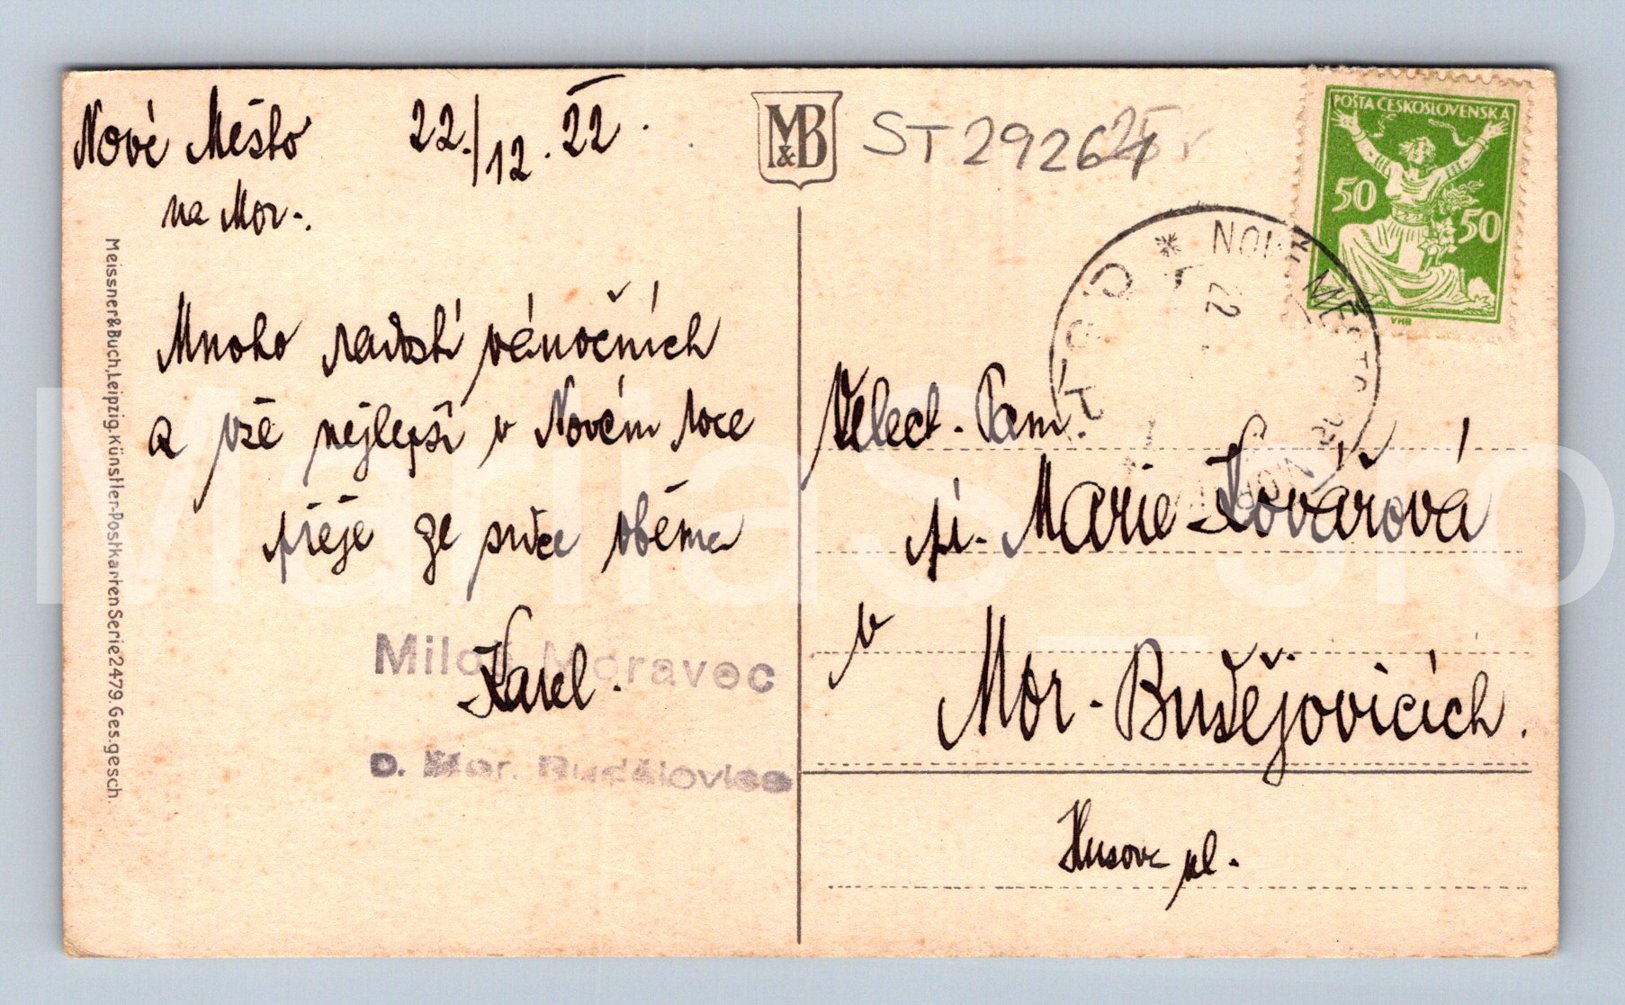 Nové Město 22./12. 22.
na Mor.
Mnoho radostí vánočních
a vše nejlepší v Novém roce
přeje ze srdce oběma
Karel.
Miloš Moravec
D. Mor. Budějovice
Meissner&Buch,Leipzig.Künstler-Postkarten Serie 2479. Ges.gesch.
M&B
ST 29264
POŠTA ČESKOSLOVENSKÁ
50 50
NOVÉ MĚSTO
22
Velect. Paní.
pí. Marie Kovářová
v
Mor. Budějovicích.
Husova ul.
MariaS sro